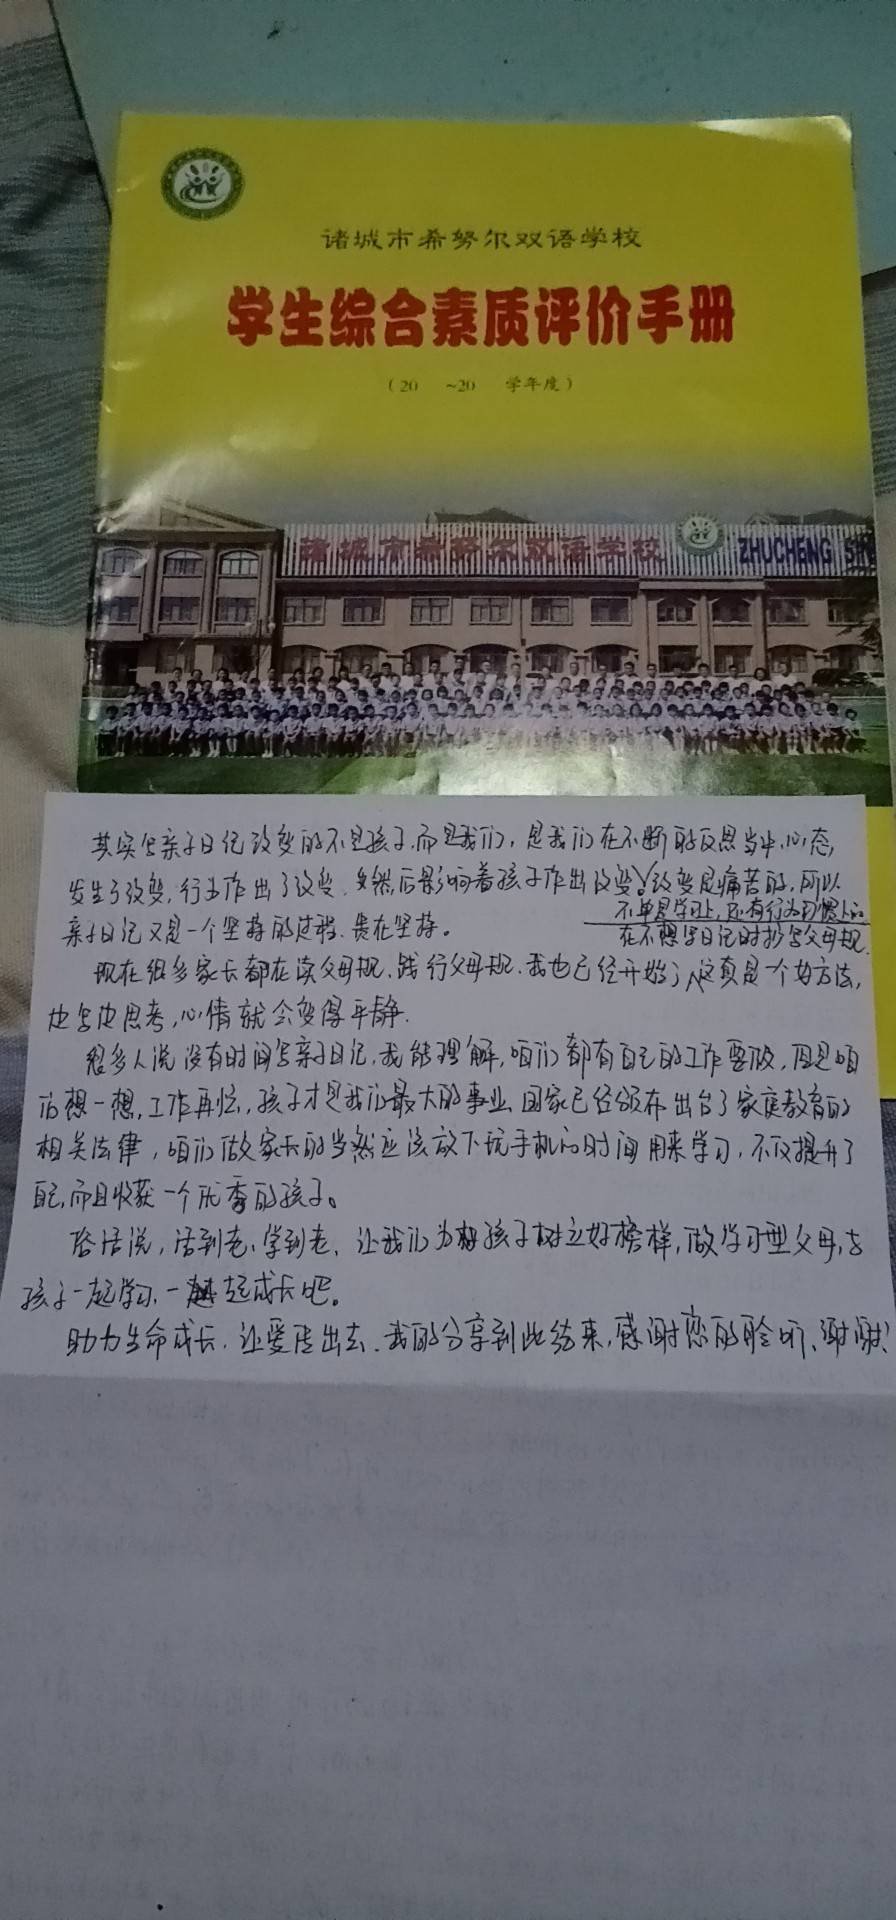 诸城市希努尔双语学校
学生综合素质评价手册
（20 ~20 学年度）
诸城市希努尔双语学校 ZHUCHENG
其实写亲子日记改变的不是孩子，而是我们，是我们在不断的反思当中，心态，
发生了改变，行为作出了改变，然后影响着孩子作出改变。改变是痛苦的，所以
不单是学习上，还有行为习惯上的
亲子日记又是一个坚持的过程，贵在坚持。
在不想写日记时抄写父母规
现在很多家长都在读父母规，践行父母规，我也已经开始了，这真是一个好方法，
边写边思考，心情就会变得平静.
很多人说没有时间写亲子日记，我能理解，咱们都有自己的工作要做，但是咱
们想一想，工作再忙，孩子才是我们最大的事业，国家已经颁布出台了家庭教育的
相关法律，咱们做家长的当然应该放下玩手机的时间用来学习，不仅提升了
自己，而且收获一个优秀的孩子。
俗话说，活到老，学到老，让我们为孩子树立好榜样，做学习型父母，与
孩子一起学习，一起成长吧。
助力生命成长，让爱传出去，我的分享到此结束，感谢您的聆听，谢谢！